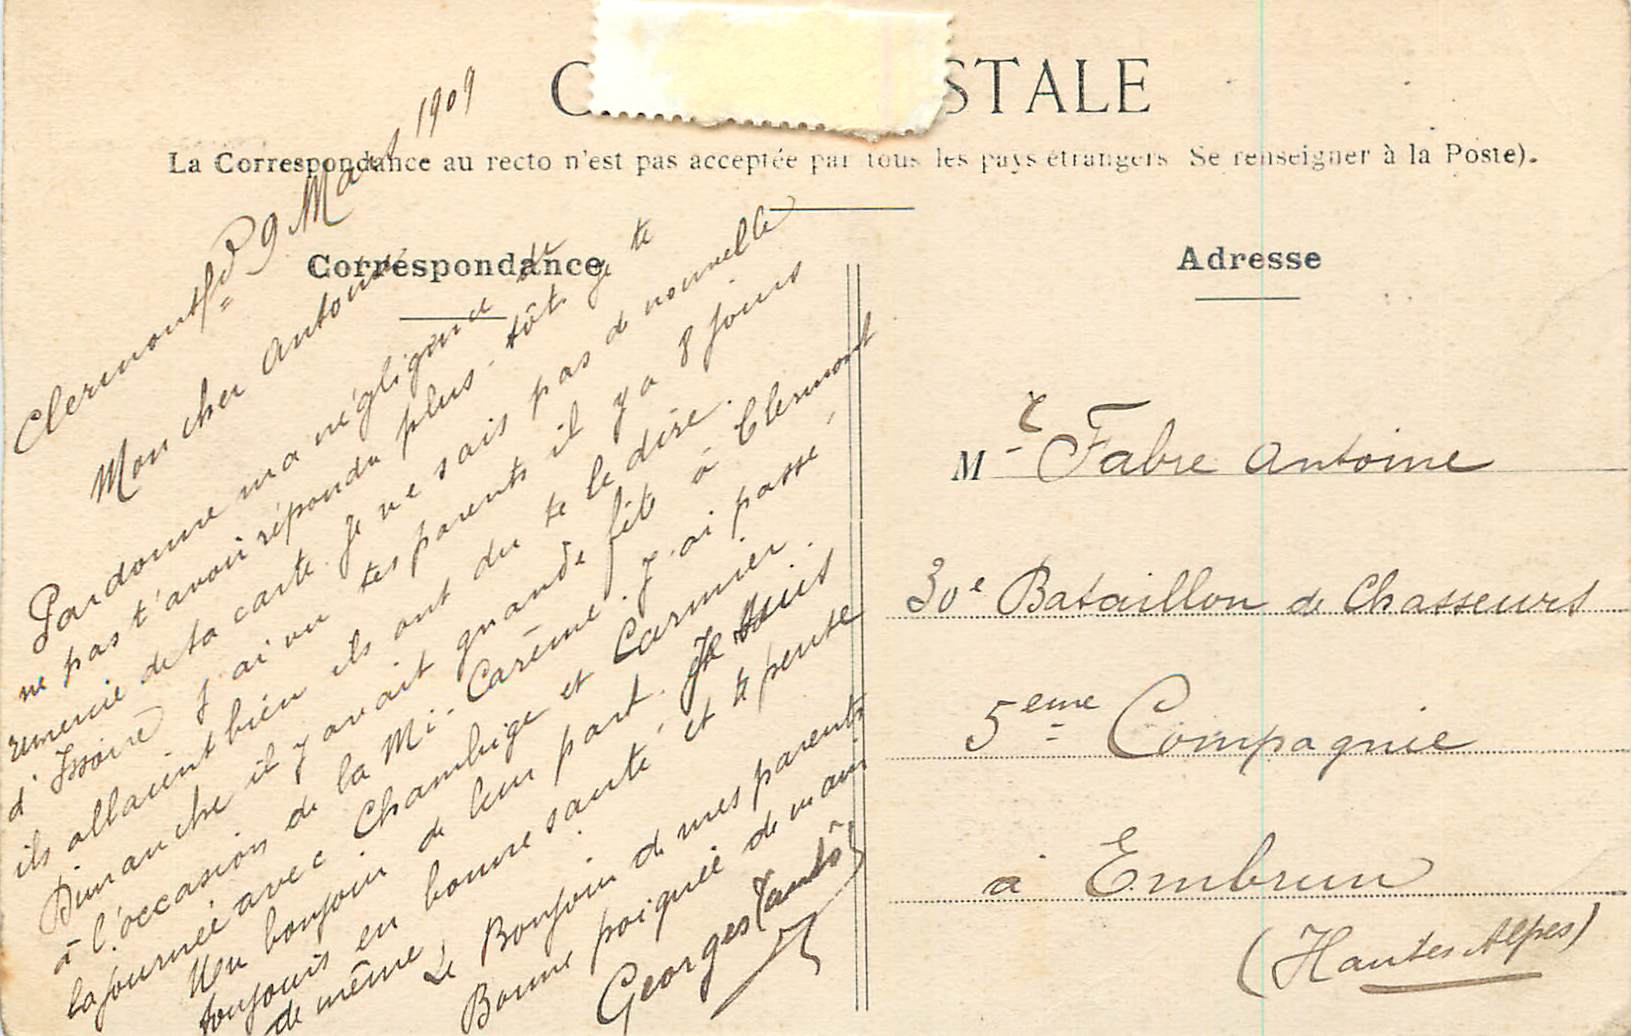 C STALE
La Correspondance au recto n'est pas acceptée par tous les pays étrangers Se renseigner à la Poste).
Correspondance
Clermont fd 9 Mars 1909
Mon cher Antoine
Pardonne ma négligence de
ne pas t'avoir répondu plus-tôt je te
remercie de ta carte. Je ne sais pas de nouvelle
d'Issoire j'ai vu tes parents il y a 8 jours
ils allaient bien ils ont du te le dire.
Dimanche il y avait grande fête à Clermont
à l'occasion de la Mi-Carême. J'ai passé
la journée avec Chambige et Carmier.
Un bonjour de leur part. Je suis
toujours en bonne santé et te pense
de même. Le Bonjour de mes parents
Bonne poignée de main
Georges
Adresse
Mr Fabre Antoine
30e Bataillon de Chasseurs
5eme Compagnie
à Embrun
(Hautes Alpes)